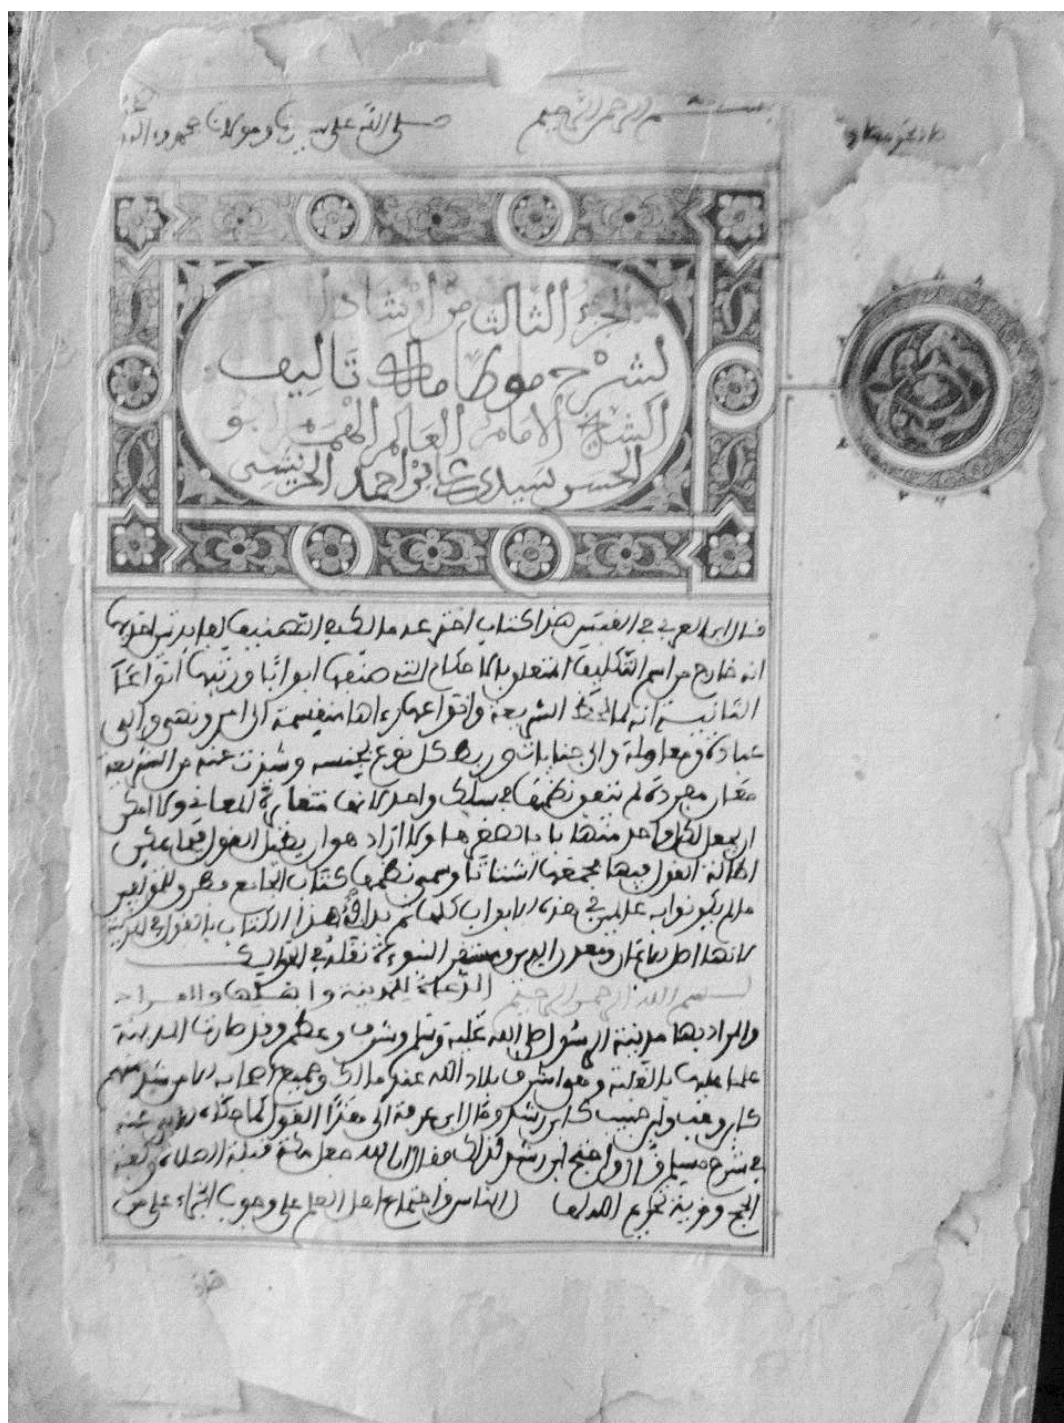 بسم الله الرحمن الرحيم صلى الله على سيدنا ومولانا محمد وءاله
الجزء الثالث من ارشاد
لشرح موطا مالك تاليف
الشيخ الامام العالم الهمام ابو
الحسن سيدي علي بن احمد الحريشي
قال ابن العربي في القبس هذا كتاب اخترعه مالك في التصنيف لفايدتين احديهما
انه خارج من رسم التكليف المتعلق بالاحكام التي صنفها ابوابا ورتبها انواعا
الثانية انه لما لحظ الشريعة وانواعها وراها منقسمة الى امر ونهي والى
عبادة ومعاملة والى جنايات وربط كل نوع بجنسه وشذت عنه من الشريعة
معان مجردة لم يتفق نظمها في سلك واحد لانها متغايرة المعاني ولا امكن
ان يجعل لكل واحد منها بابا لصغرها ولا اراد هو ان يطيل القول فيما يمكن
اطالة القول فيها فجمعها اشتاتا وسمى نظمها كتاب الجامع فطرق للمؤلفين
ما لم يكونوا به عالمين في هذه الابواب كلها ثم بدا في هذا الكتاب بالقول في المدينة
لانها اصل الايمان ومعدن الدين ومستقر النبوءة
بسم الله الرحمن الرحيم الدعاء للمدينة واهلها
والمراد بها مدينة الرسول صلى الله عليه وسلم وشرف وعظم وقد صارت المدينة
علما عليها بالغلبة وهو اشرف بلاد الله عند مالك وجميع اصحابه الا من شذ منهم
كابن وهب وابن حبيب كابن رشد وقال ابن عرفة
في شرح مسلم قال واحتج ابن رشد لذلك فقال ان الله جعل مكة قبلة الصلاة وكعبة
الحج ومزية تحريم الله لها الناس واجماع اهل العلم على وجوب الجزاء على من